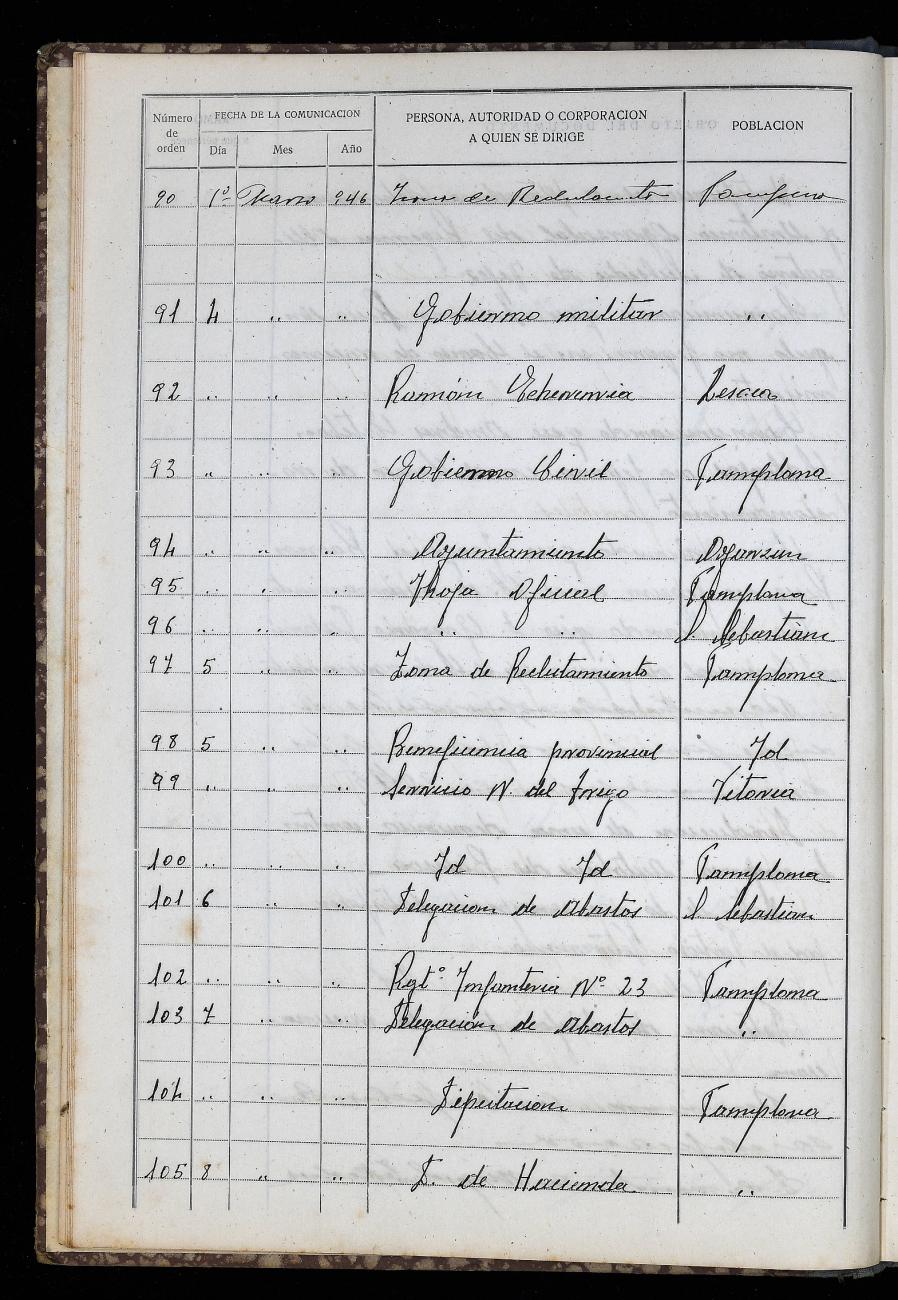 Número de orden FECHA DE LA COMUNICACION PERSONA, AUTORIDAD O CORPORACION A QUIEN SE DIRIGE POBLACION
Día Mes Año
90 1º Marzo 946 Zona de Reclutamiento Pamplona
91 4 .. .. Gobierno militar ..
92 .. .. .. Ramón Echeverria Lesaca
93 .. .. .. Gobierno Civil Pamplona
94 .. .. .. Ayuntamiento Oyarzun
95 .. .. .. Hoja Oficial Pamplona
96 .. .. .. .. .. S. Sebastián
97 5 .. .. Zona de Reclutamiento Pamplona
98 5 .. .. Beneficencia provincial Id
99 .. .. .. Servicio N. del Trigo Vitoria
100 .. .. .. Id Id Pamplona
101 6 .. .. Delegacion de Abastos S Sebastian
102 .. .. .. Rgtº Infanteria Nº 23 Pamplona
103 7 .. .. Delegación de Abastos ..
104 .. .. .. Diputacion Pamplona
105 8 .. .. D. de Hacienda ..